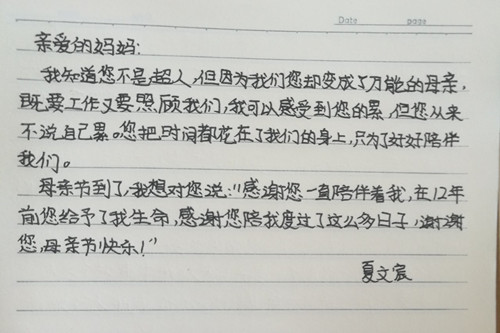 Date page
亲爱的妈妈:
我知道您不是超人,但因为我们您却变成了万能的母亲,
既要工作又要照顾我们,我可以感受到您的累,但您从来
不说自己累。您把时间都花在了我们的身上,只为了好好陪伴
我们。
母亲节到了,我想对您说:“感谢您一直陪伴着我,在12年
前您给予了我生命,感谢您陪我度过了这么多日子,谢谢
您,母亲节快乐!”
夏文宸